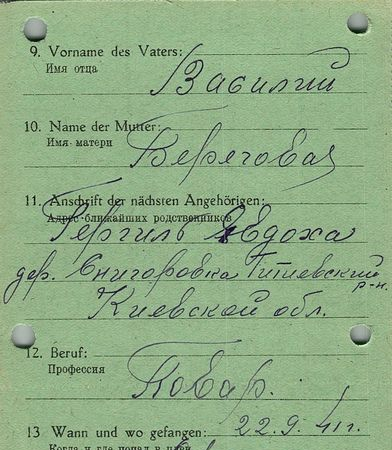 9. Vorname des Vaters:
Имя отца
Василий
10. Name der Mutter:
Имя матери
Береговая
11. Anschrift der nächsten Angehörigen:
Адрес ближайших родственников
Евдоха
дер. Снигоровка Гитиевский
р-н.
Киевской обл.
12. Beruf:
Профессия
Повар.
13 Wann und wo gefangen: 22.9.41г.
Когда и где попал в плен